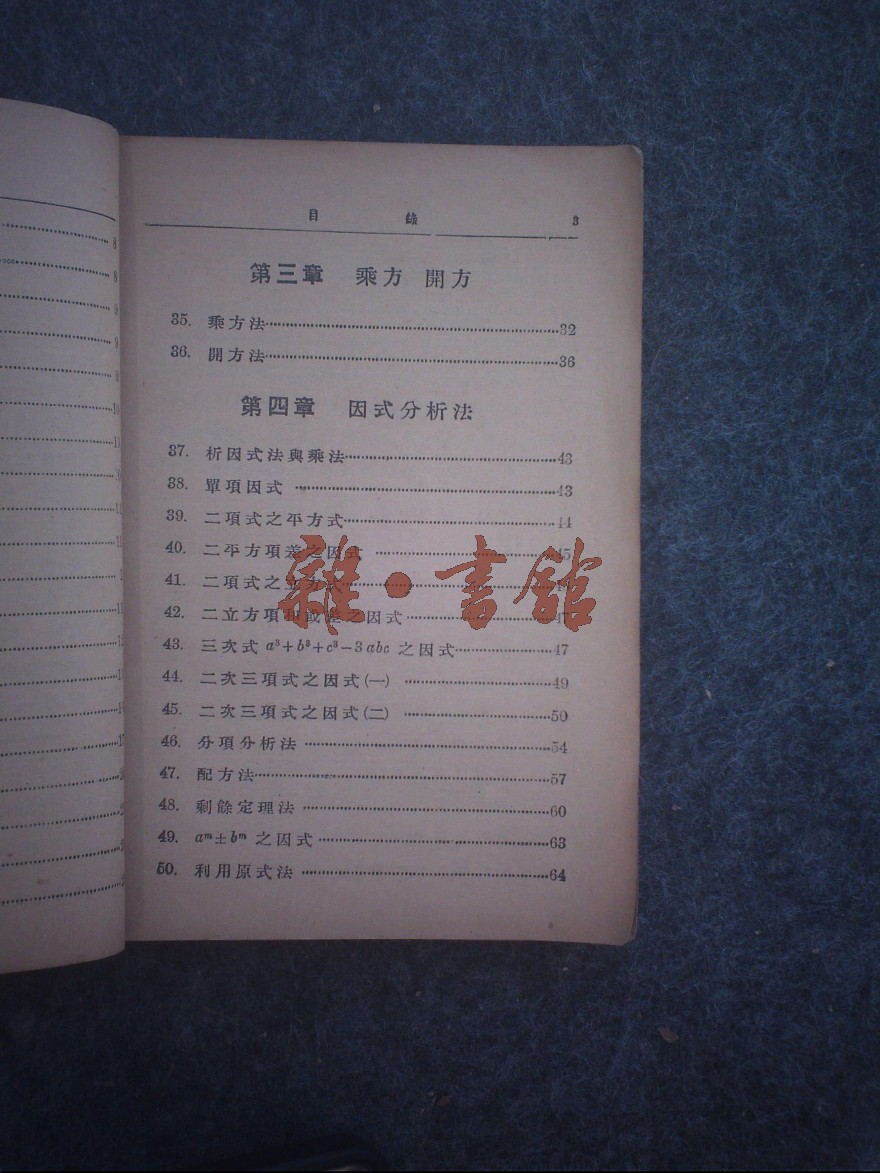 目 錄 3
第三章 乘方 開方
35. 乘方法 32
36. 開方法 36
第四章 因式分析法
37. 析因式法與乘法 43
38. 單項因式 43
39. 二項式之平方式 44
40. 二平方項差之因式 45
41. 二項式之立方式
42. 二立方項和或差之因式
43. 三次式 a³+b³+c³−3abc 之因式 47
44. 二次三項式之因式(一) 49
45. 二次三項式之因式(二) 50
46. 分項分析法 54
47. 配方法 57
48. 剩餘定理法 60
49. aᵐ±bᵐ 之因式 63
50. 利用原式法 64
雜·書館